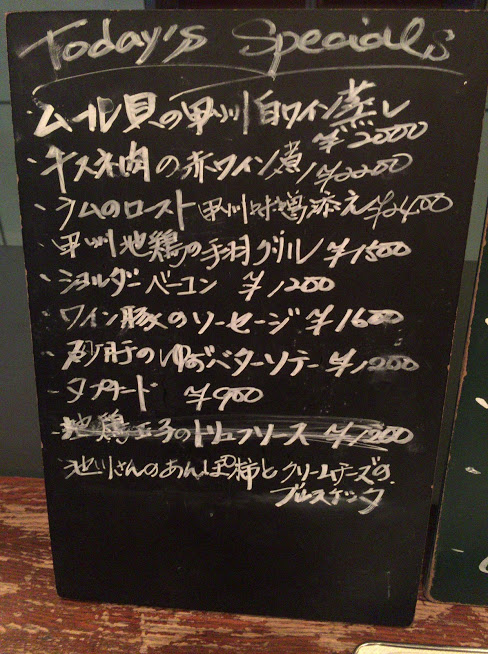 Today's Specials
・ムール貝の甲州白ワイン蒸し
¥2000
・牛スネ肉の赤ワイン煮 ¥2200
・ラムのロースト 甲州味噌添え ¥2400
・甲州地鶏の手羽グリル ¥1500
・ショルダーベーコン ¥1200
・ワイン豚のソーセージ ¥1600
・砂肝のゆずバターソテー ¥1200
・タプナード ¥900
・地鶏玉子のトリュフソース ¥1200
・池川さんのあんぽ柿とクリームチーズの
ブルスケッタ